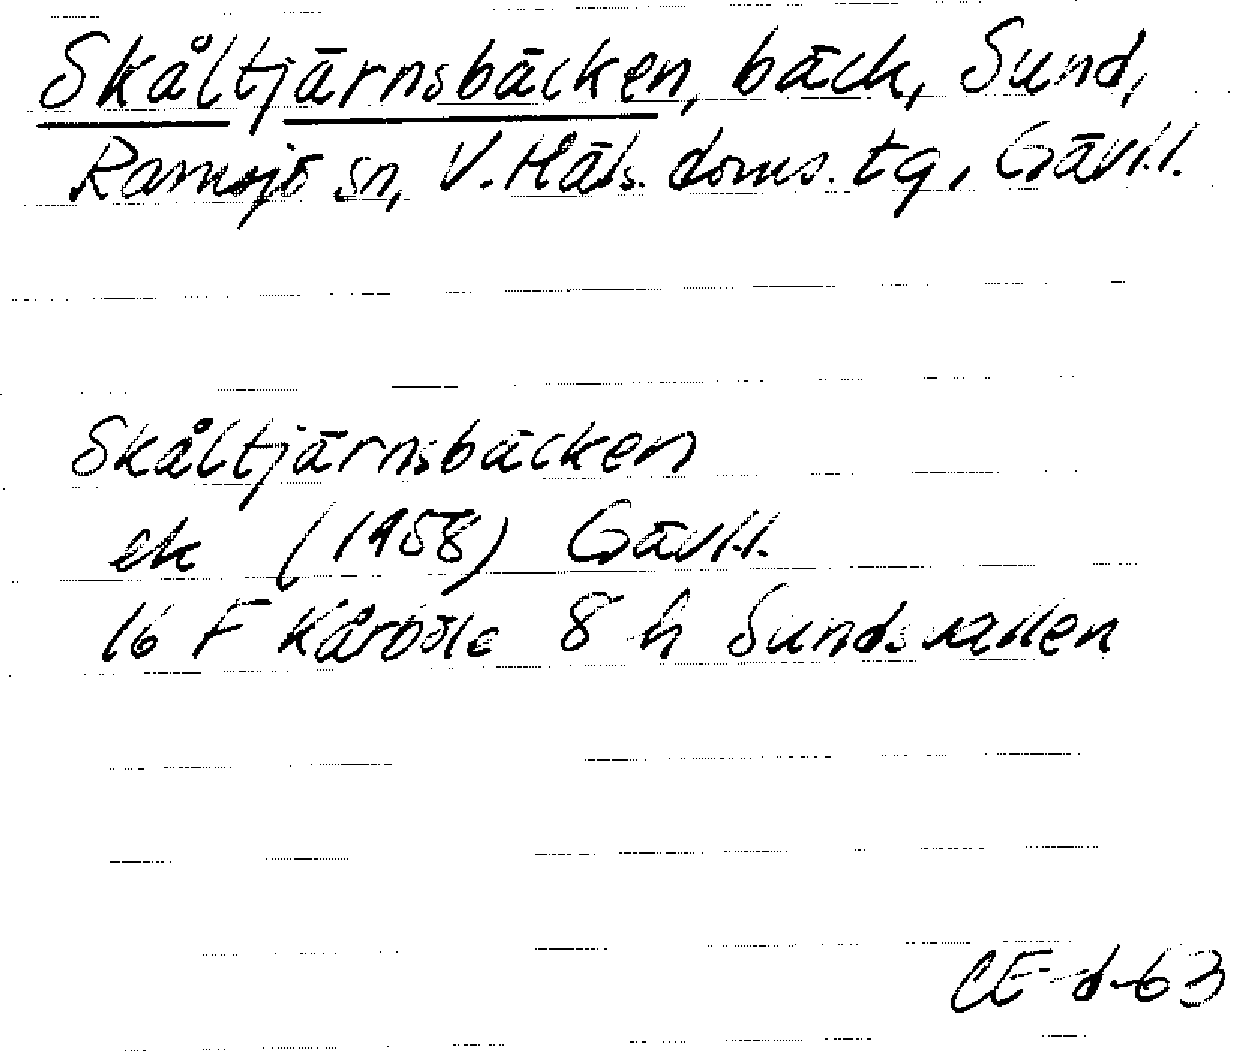 Skåltjärnsbäcken, bäck, Sund,
Ramsjö sn, V. Häls. doms. tg, Gävl.l.
Skåltjärnsbäcken
ek (1958) Gävl.l.
16 F Kårböle 8 h Sundsvallen
CE-d-63